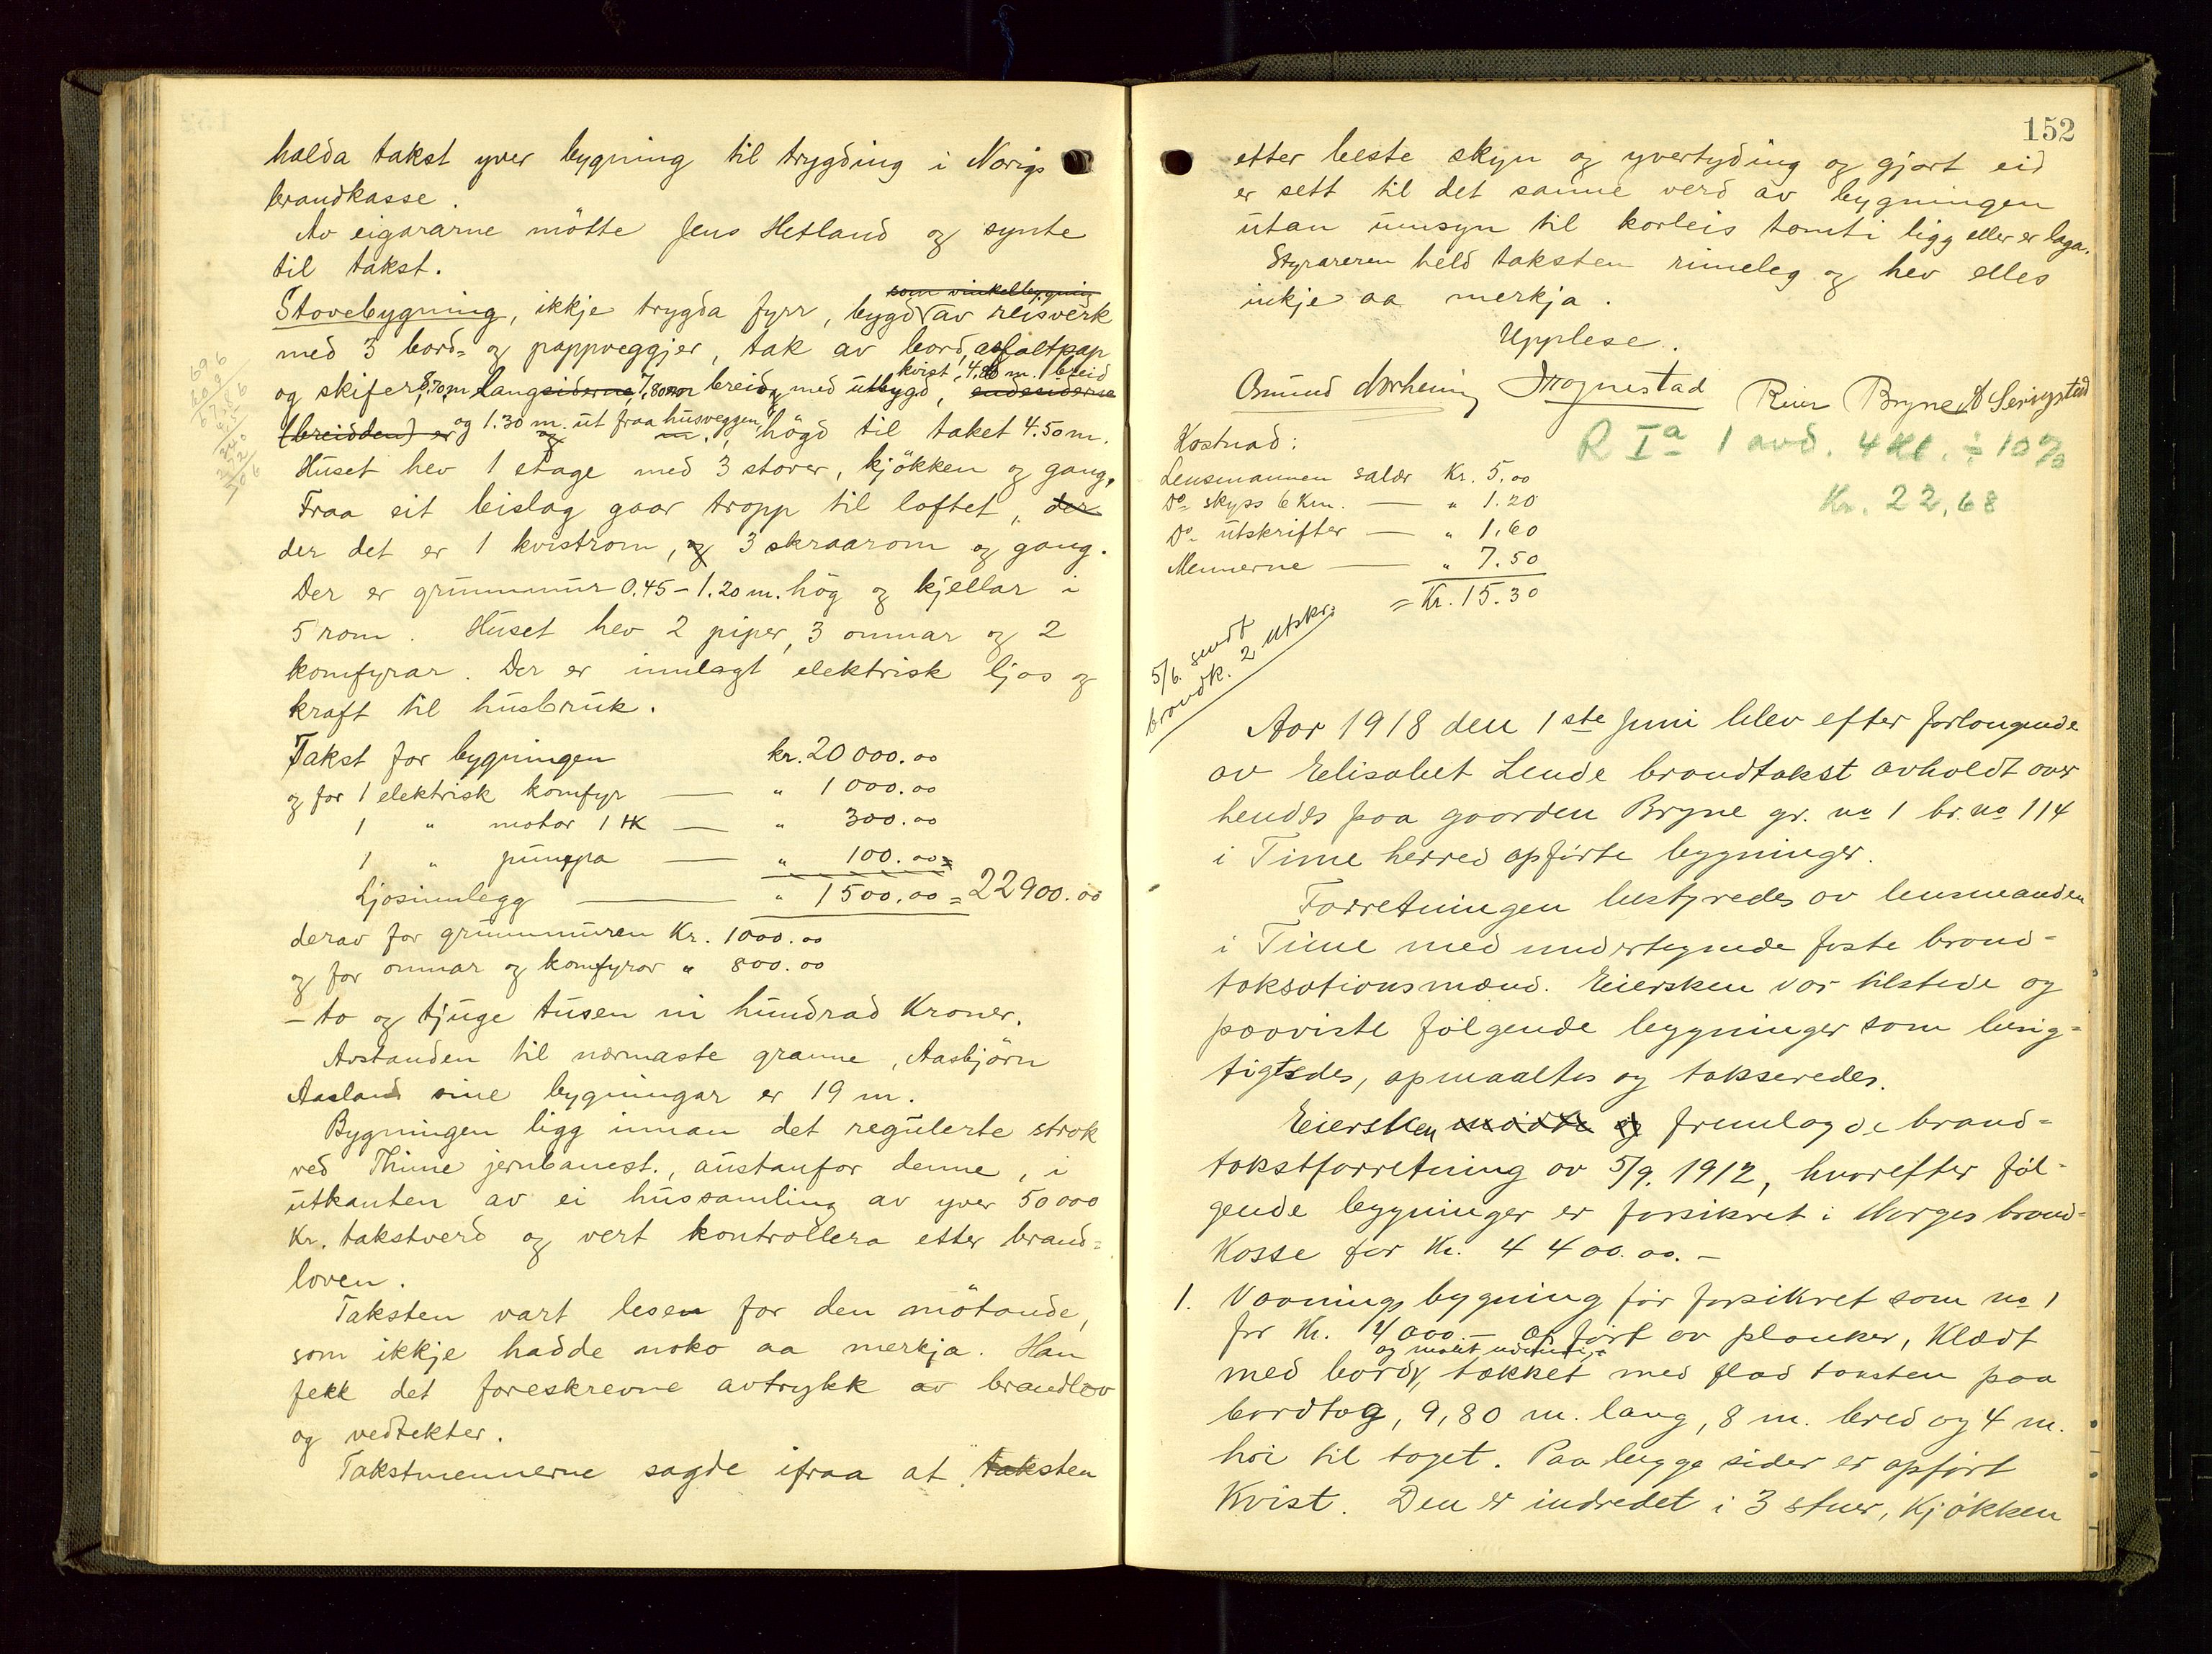 halda takst yver bygning til trygding i Norigs
brandkasse.
Av eigararne møtte Jens Hetland og synte
til takst.
som vinkelbygning
Stovebygning, ikkje trygda fyrr, bygd av reisverk
med 3 bord- og pappveggjer, tak av bord, asfaltpap
kvist, m. breid
og skifer, 8,70 m lang siderne 7,80 m breid, med utbygd, endesiderne
(breidden) er og 1.30 m. ut fraa husveggen, høgd til taket 4.50 m.
Huset hev 1 etage med 3 stover, kjøkken og gang.
Fraa eit bislag gaar tropp til loftet, der
der det er 1 kvistrom, og 3 skraarom og gang.
Der er grunnmur 0.45 - 1.20 m. høg og kjellar i
5 rom. Huset hev 2 piper, 3 omnar og 2
komfyrar. Der er innlagt elektrisk ljos og
kraft til husbruk.
Takst for bygningen kr. 20 000.00
og for 1 elektrisk komfyr — " 1 000.00
1 " motor 1 HK — " 300.00
1 " pumpa — " 100.00
Ljosinnlegg — " 1 500.00 = 22 900.00
derav for grunnmuren Kr. 1000.00
og for omnar og komfyrar " 800.00
- to og tjuge tusen ni hundrad Kroner.
Avstanden til nærmaste granne, Aasbjørn
Aasland sine bygningar er 19 m.
Bygningen ligg innan det regulerte strøk
ved Thime jernbanest., austanfor denne, i
utkanten av ei hussamling av yver 50 000
Kr. takstverd og vert kontrollera etter brand-
loven.
Taksten vart lesen for den møtande,
som ikkje hadde noko aa merkja. Han
fekk det foreskrevne avtrykk av brandlov
og vedtekter.
Takstmennerne sagde ifraa at taksten
152
etter beste skyn og yvertyding og gjort eid
er sett til det sanne verd av bygningen
utan umsyn til korleis tomti ligg eller er laga.
Styraren held taksten rimeleg og hev elles
inkje aa merkja.
Upplese.
Osmund Norheim Trognestad Reier Bryne A Serigstad
Kostnad:
R Iª 1 avd. 4 Kl. ÷ 10%
Lensmannen salær Kr. 5,00
Kr. 22,68
Do skyss 6 Km. — " 1.20
Do utskrifter — " 1,60
Mennerne — " 7.50
= Kr. 15.30
5/6 sendt
brandk. 2 utskr.
Aar 1918 den 1ste Juni blev efter forlangende
av Elisabet Lende brandtakst avholdt over
hendes paa gaarden Bryne gr. no 1 br. no 114
i Time herred opførte bygninger.
Forretningen bestyredes av lensmanden
i Time med undertegnede faste brand-
taksationsmænd. Eiersken var tilstede og
paaviste følgende bygninger som besig-
tigtedes, opmaaltes og takseredes.
Eiersken mødte og fremlagde brand-
takstforretning av 5/9. 1912, hvorefter føl-
gende bygninger er forsikret i Norges brand-
kasse for Kr. 4 400.00. -
1. Vaaningsbygning før forsikret som no 1
for Kr. 4000.- opført av planker, klædt
og malt udvendig
med bord, tækket med flad taksten paa
bordtag, 9,80 m. lang, 8 m. bred og 4 m.
høi til taget. Paa begge sider er opført
Kvist. Den er indredet i 3 stuer, Kjøkken